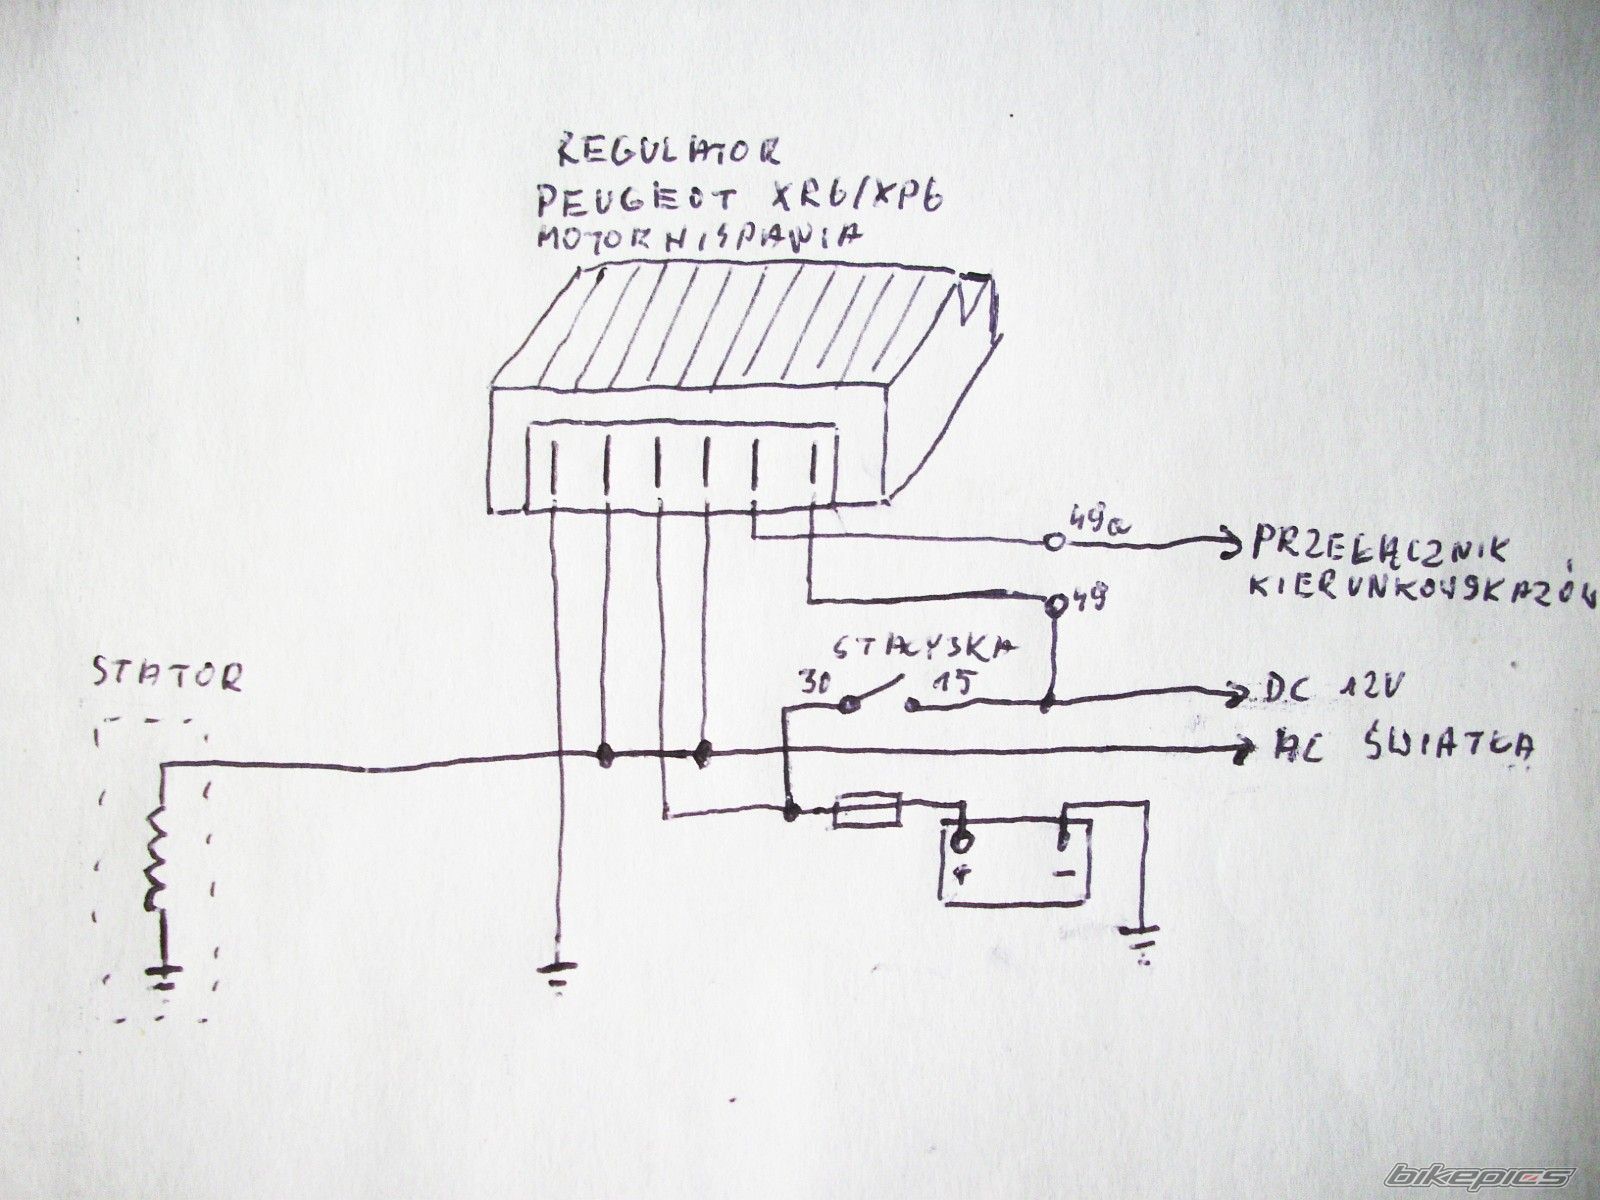 REGULATOR
PEUGEOT XR6/XP6
MOTORHISPANIA
49a
PRZEŁĄCZNIK
KIERUNKOWSKAZÓW
49
STACYJKA
30 15
DC 12V
AC ŚWIATŁA
STATOR
+ -
bikepics